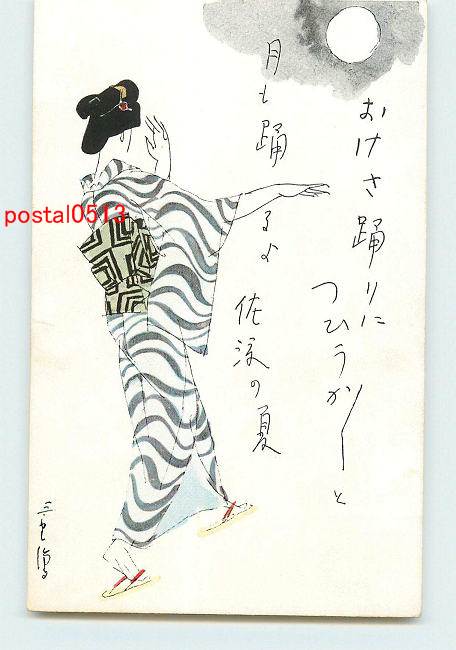 おけさ踊りに
つひうか〳〵と
月も踊るよ
佐渡の夏
postal0513